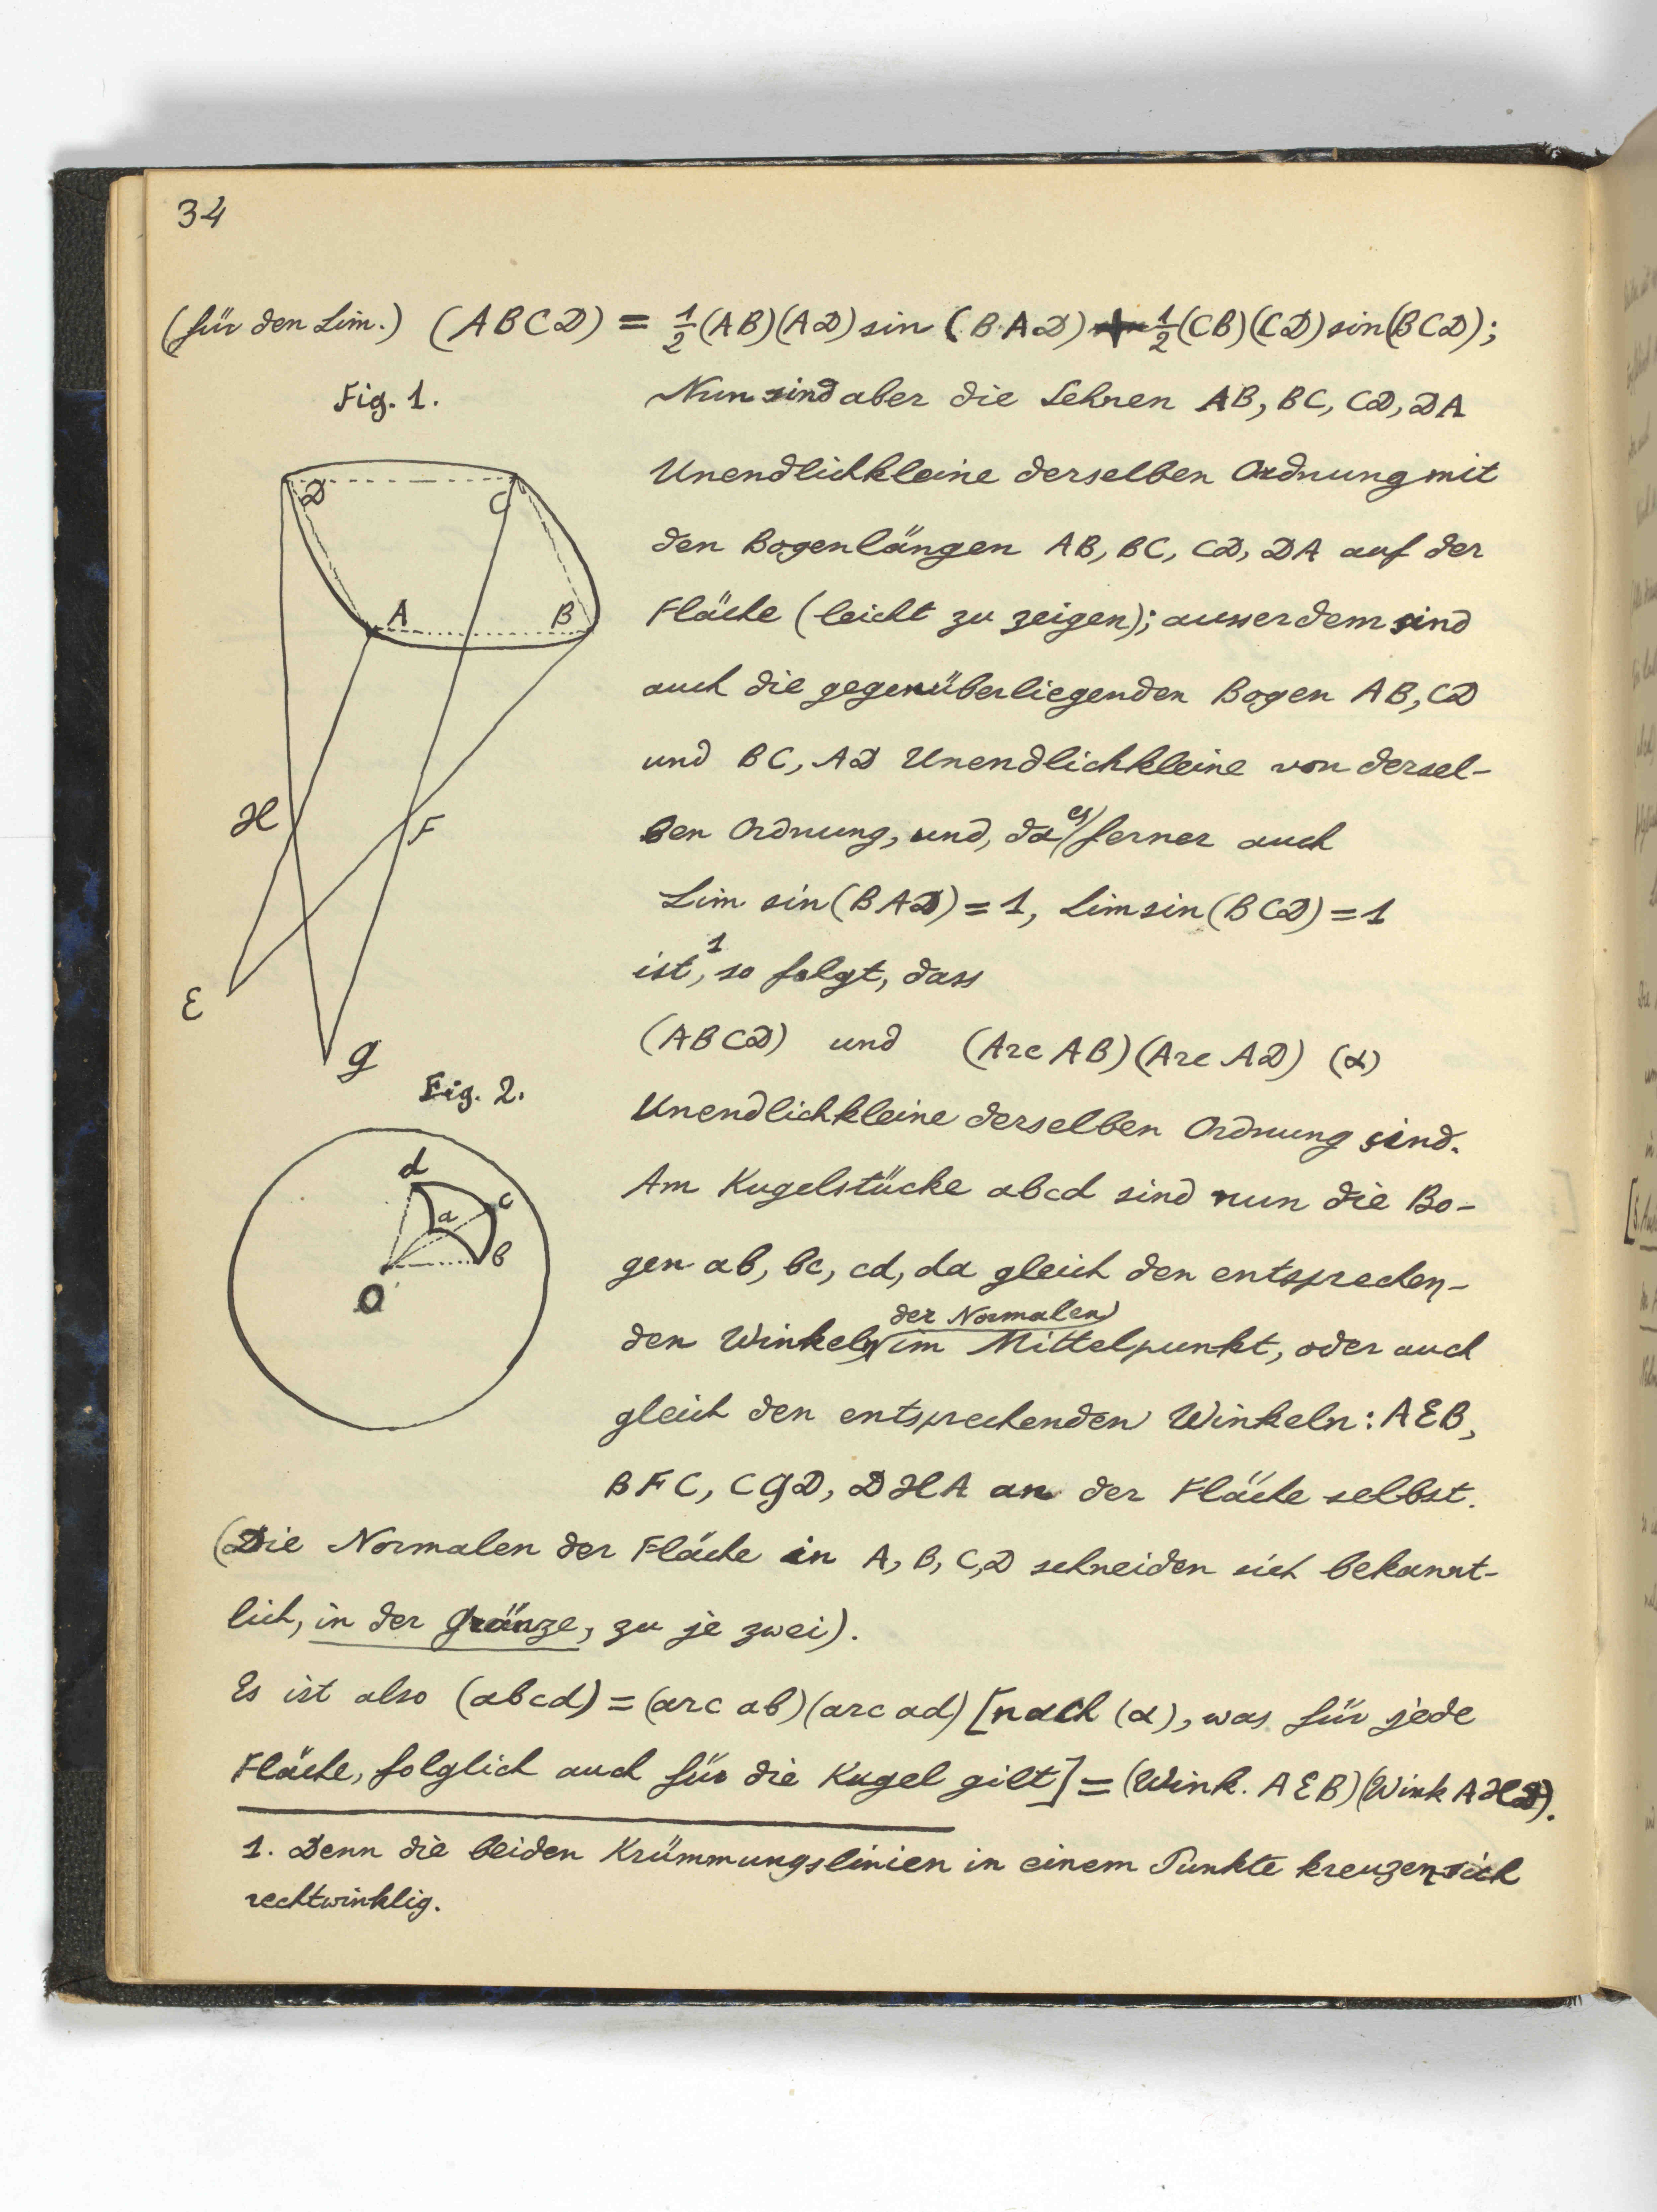 34
(für den Lim.) (ABCD) = 1/2 (AB)(AD) sin (BAD) + 1/2 (CB)(CD) sin (BCD);
Fig. 1.
Nun sind aber die Sehnen AB, BC, CD, DA
Unendlichkleine derselben Ordnung mit
den Bogenlängen AB, BC, CD, DA auf der
Fläche (leicht zu zeigen); ausserdem sind
auch die gegenüberliegenden Bogen AB, CD
und BC, AD Unendlichkleine von dersel-
ben Ordnung, und, da es ferner auch
Lim sin (BAD) = 1, Lim sin (BCD) = 1
ist,¹ so folgt, dass
(ABCD) und (Arc AB)(Arc AD) (α)
Unendlichkleine derselben Ordnung sind.
D
C
A
B
H
F
E
G
Fig. 2.
d
c
a
b
O
Am Kugelstücke abcd sind nun die Bo-
gen ab, bc, cd, da gleich den entsprechen-
den Winkeln der Normalen im Mittelpunkt, oder auch
gleich den entsprechenden Winkeln: AEB,
BFC, CGD, DHA an der Fläche selbst.
(Die Normalen der Fläche in A, B, C, D schneiden sich bekannt-
lich, in der Gränze, zu je zwei).
Es ist also (abcd) = (arc ab)(arc ad) [nach (α), was für jede
Fläche, folglich auch für die Kugel gilt] = (Wink. AEB)(Wink AHD).
1. Denn die beiden Krümmungslinien in einem Punkte kreuzen sich
rechtwinklig.